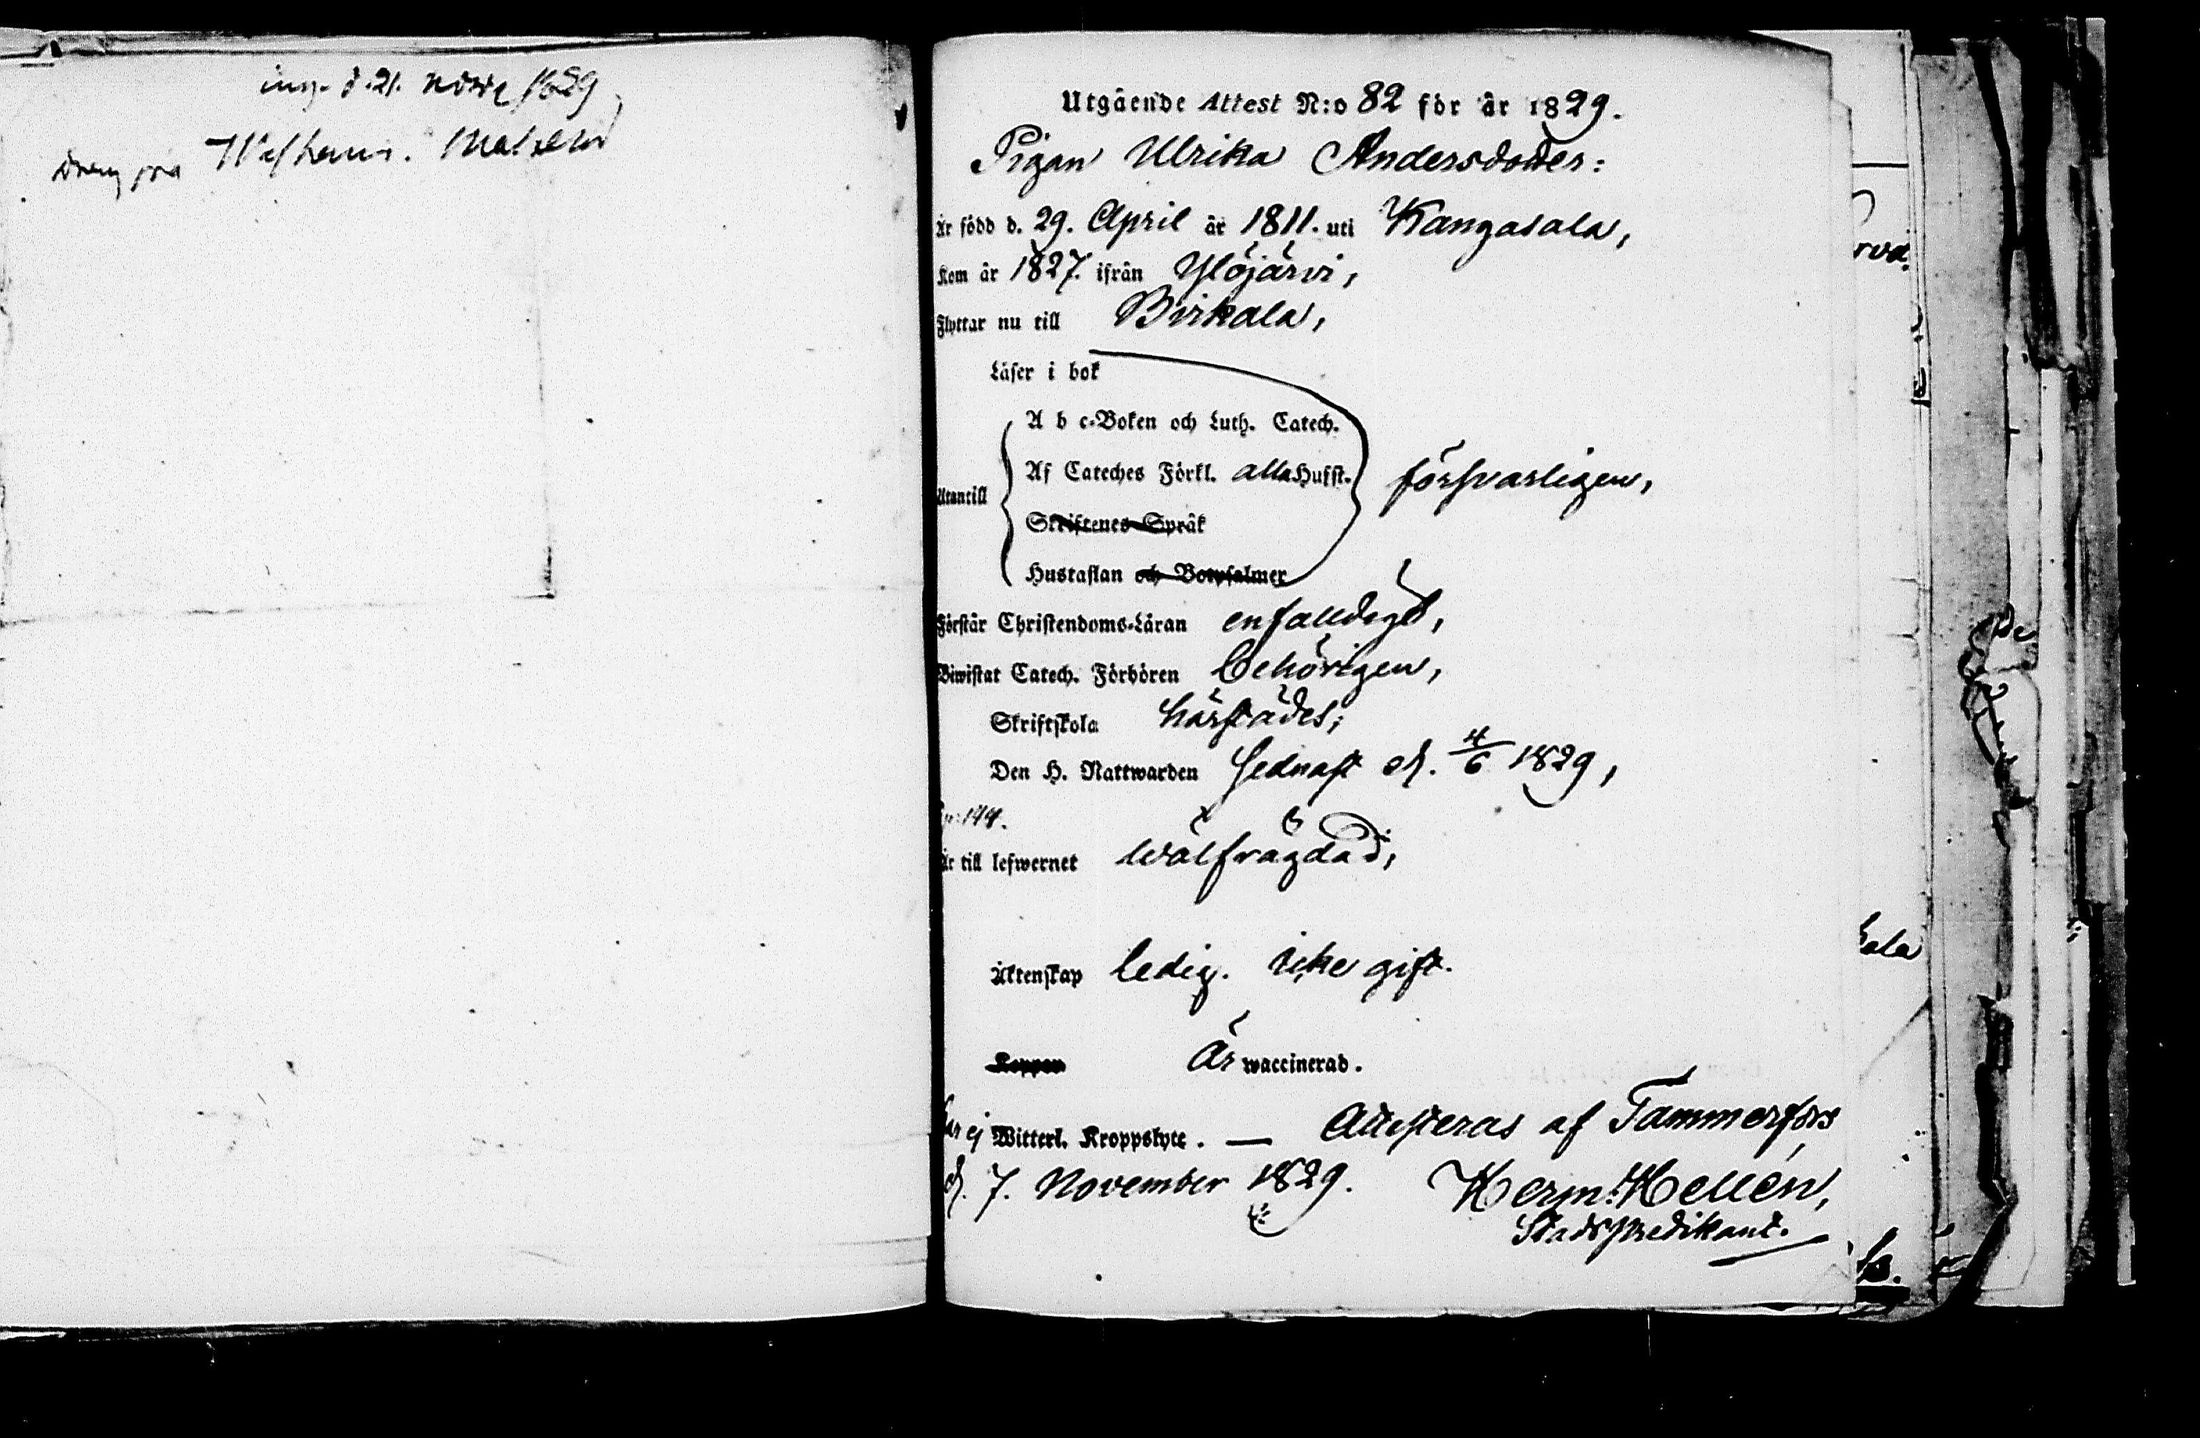 d. 21. 1829
Utgående Attest N:o 82 för år 1829.
Pigan Ulrika Andersdotter:
Är född d. 29. April år 1811. uti Kangasala,
Kom år 1827. ifrån Ylöjärvi,
Flyttar nu till Birkala,
Läser i bok
A b c-Boken och Luth. Catech.
Af Cateches Förkl. alla Hufst.
Utantill försvarligen,
Skriftenes Språk
Hustaflan och Botpsalmer
Förstår Christendoms-Läran enfaldigt,
Biwistat Catech. Förhören behörigen,
Skriftskola härstädes;
Den H. Nattwarden sednast d. 4/6 1829,
Är till lefwernet wälfrägdad,
Äktenskap ledig. icke gift.
Koppor Är waccinerad.
Har ej Witterl. Kroppslyte. — Attesteras af Tammerfors
d. 7. November 1829. Herm: Hellén,
Stadspredikant.